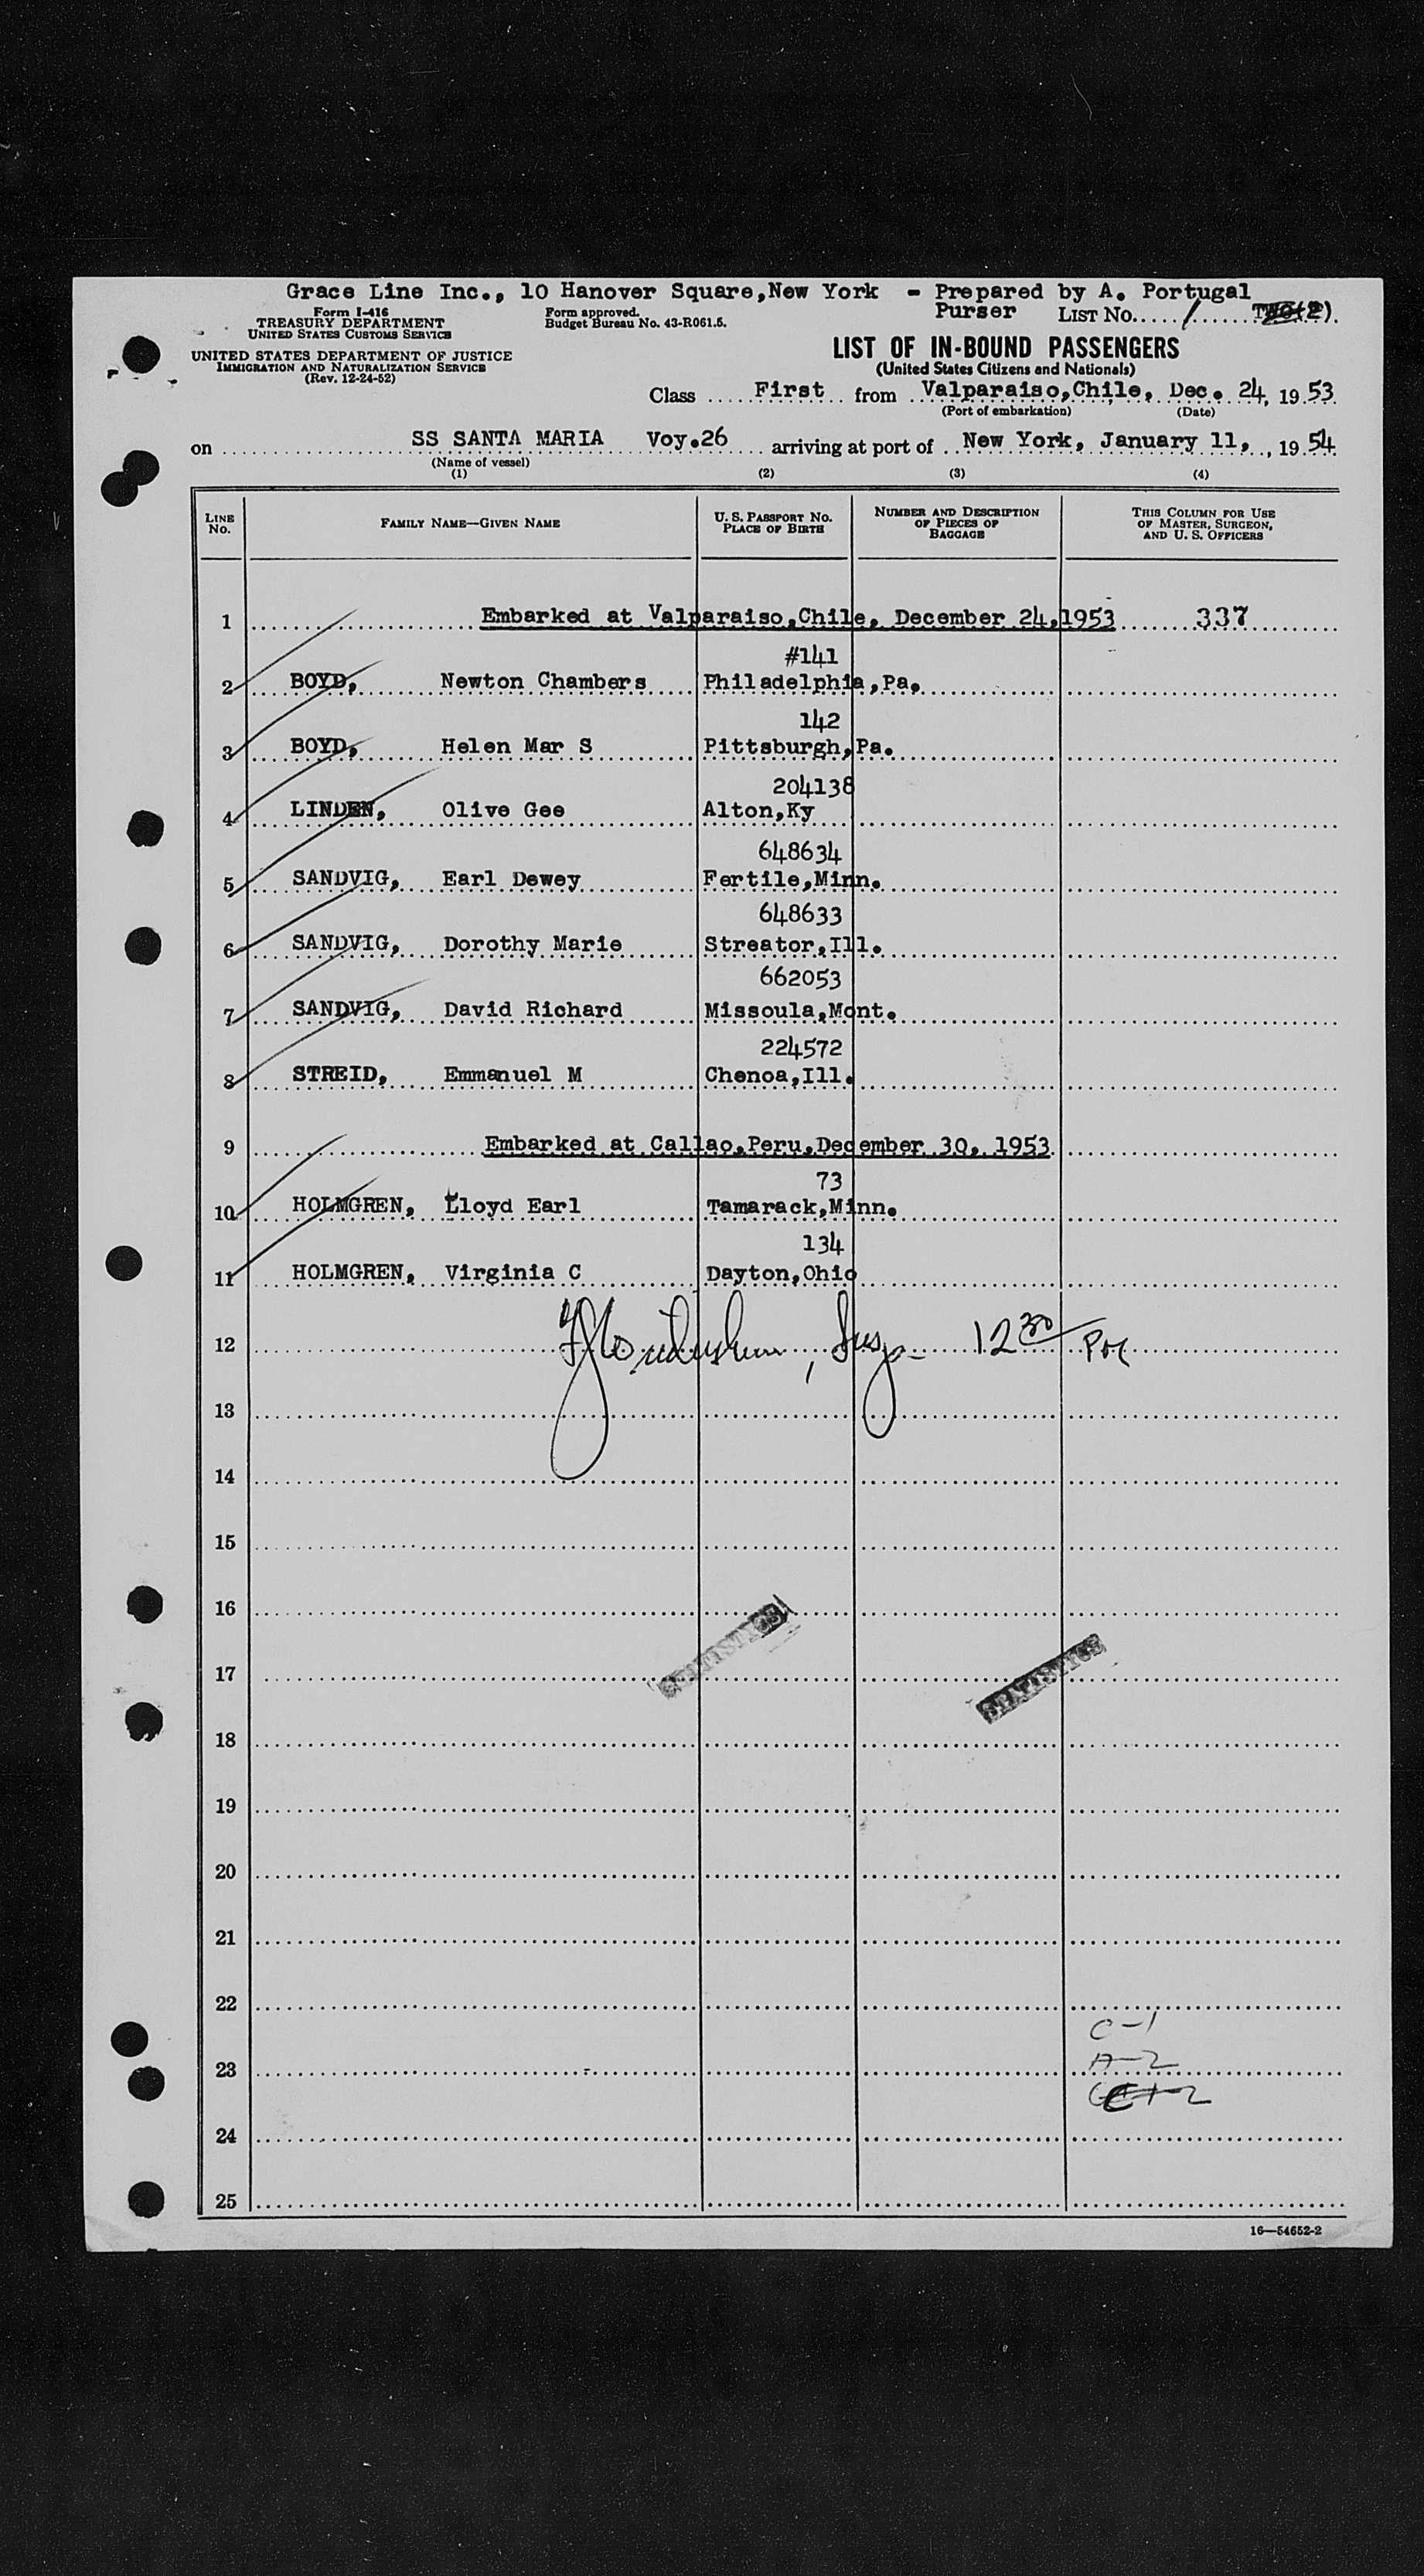 Grace Line Inc., 10 Hanover Square,New York - Prepared by A. Portugal
Purser
Form I-416
TREASURY DEPARTMENT
UNITED STATES CUSTOMS SERVICE
Form approved.
Budget Bureau No. 43-R061.5.
LIST No. 1 (2).
UNITED STATES DEPARTMENT OF JUSTICE
IMMIGRATION AND NATURALIZATION SERVICE
(Rev. 12-24-52)
LIST OF IN-BOUND PASSENGERS
(United States Citizens and Nationals)
Class First from Valparaiso,Chile, Dec. 24, 1953
(Port of embarkation) (Date)
on SS SANTA MARIA Voy.26 arriving at port of New York, January 11, , 1954
(Name of vessel)
(1) (2) (3) (4)
LINE No. FAMILY NAME—GIVEN NAME U. S. PASSPORT No. PLACE OF BIRTH NUMBER AND DESCRIPTION OF PIECES OF BAGGAGE THIS COLUMN FOR USE OF MASTER, SURGEON, AND U. S. OFFICERS
1 Embarked at Valparaiso,Chile, December 24,1953 337
#141
2 BOYD, Newton Chambers Philadelphia,Pa.
142
3 BOYD, Helen Mar S Pittsburgh,Pa.
204138
4 LINDEN, Olive Gee Alton,Ky
648634
5 SANDVIG, Earl Dewey Fertile,Minn.
648633
6 SANDVIG, Dorothy Marie Streator,Ill.
662053
7 SANDVIG, David Richard Missoula,Mont.
224572
8 STREID, Emmanuel M Chenoa,Ill.
9 Embarked at Callao,Peru,December 30, 1953
73
10 HOLMGREN, Lloyd Earl Tamarack,Minn.
134
11 HOLMGREN, Virginia C Dayton,Ohio
12 12 30 PM
13
14
15
16
STATISTICS
17
STATISTICS
18
19
20
21
22
C-1
23 A-2
24
25
16—54652-2